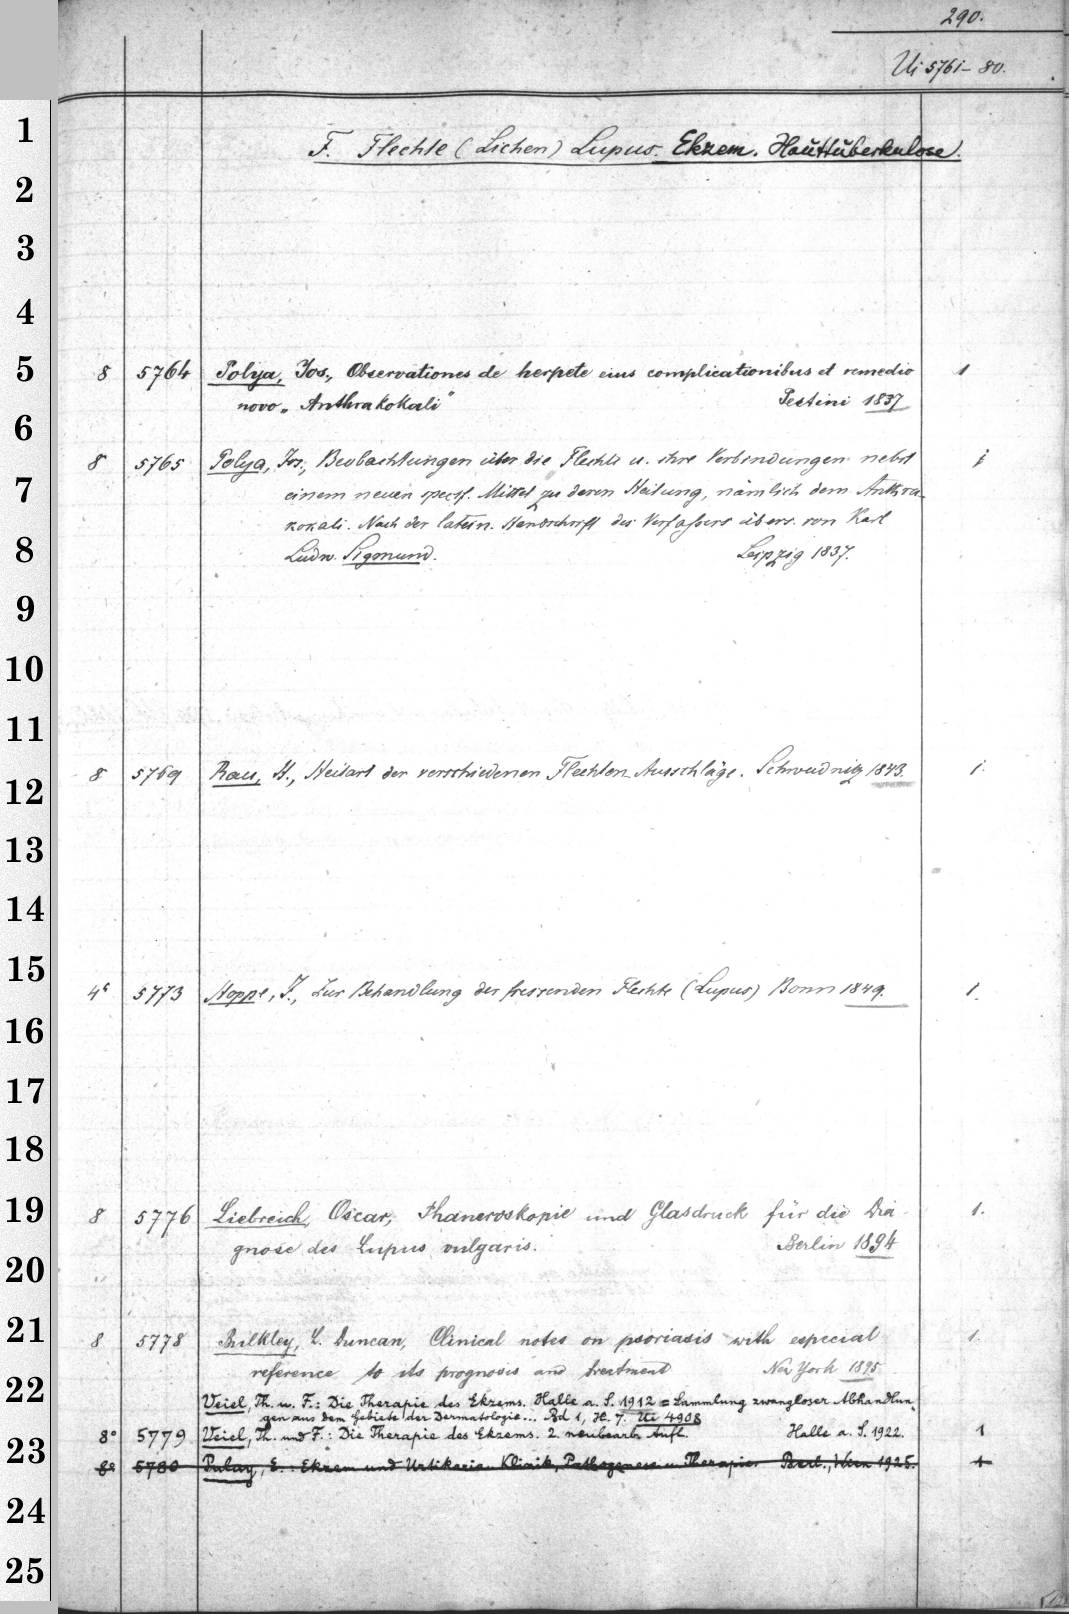 290.
Ui 5761-80.
F. Flechte (Lichen) Lupus. Ekzem. Hauttuberkulose.
8 5764 Polya, Jos., Observationes de herpete eius complicationibus et remedio 1
novo „Anthrakokali“ Pestini 1837
8 5765 Polya, Jos., Beobachtungen über die Flechte u. ihre Verbindungen nebst 1
einem neuen specif. Mittel zu deren Heilung, nämlich dem Anthra-
kokali. Nach der latein. Handschrift des Verfassers übers. von Karl
Ludw. Sigmund. Leipzig 1837.
8 5769 Rau, H., Heilart der verschiedenen Flechten Ausschläge. Schweidnitz 1843. 1.
4° 5773 Hoppe, J., Zur Behandlung der fressenden Flechte (Lupus) Bonn 1849. 1.
8 5776 Liebreich, Oscar, Phaneroskopie und Glasdruck für die Dia- 1.
gnose des Lupus vulgaris. Berlin 1894
8 5778 Bulkley, L. Duncan, Clinical notes on psoriasis with especial 1.
reference to its prognosis and treatment New York 1895
Veiel, Th. u. F.: Die Therapie des Ekzems. Halle a. S. 1912 = Sammlung zwangloser Abhandlun-
gen aus dem Gebiete der Dermatologie... Bd 1, H. 7. Ui 4908
8° 5779 Veiel, Th. und F.: Die Therapie des Ekzems. 2. neubearb. Aufl. Halle a. S. 1922. 1
8° 5780 Pulay, E.: Ekzem und Urtikaria. Klinik, Pathogenese u. Therapie. Berl., Wien 1925. 1
1
2
3
4
5
6
7
8
9
10
11
12
13
14
15
16
17
18
19
20
21
22
23
24
25